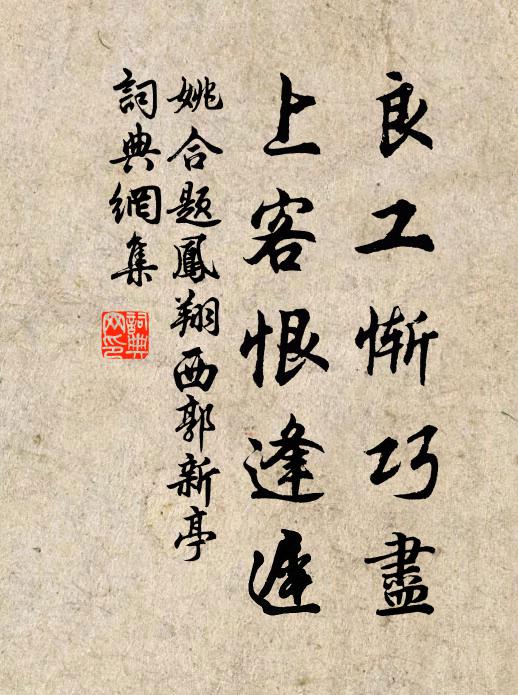 良工惭巧盡
上客恨逢遲
姚合题鳳翔西郭新亭
詞典網集
詞典网印